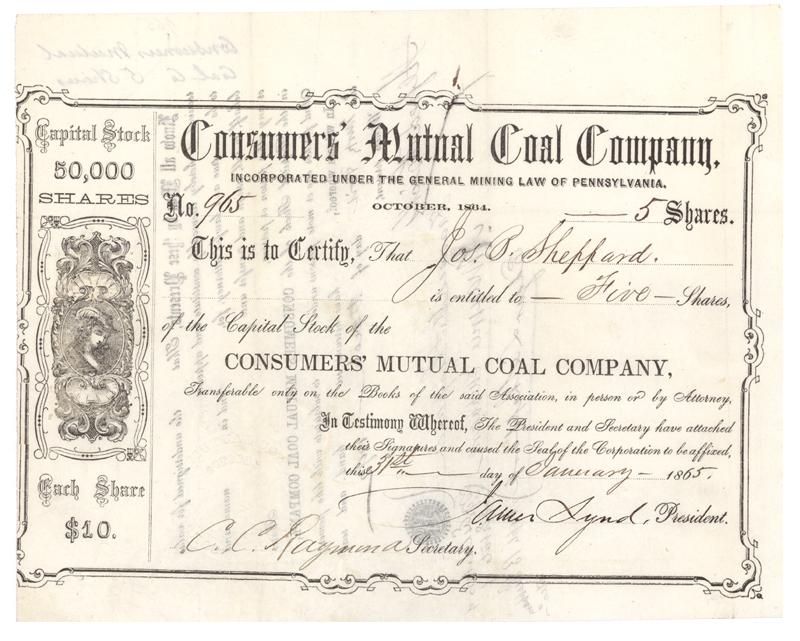 Capital Stock
50,000
SHARES
Each Share
$10.
Consumers' Mutual Coal Company,
INCORPORATED UNDER THE GENERAL MINING LAW OF PENNSYLVANIA.
OCTOBER, 1864.
No. 965 5 Shares.
This is to Certify, That Jos. P. Sheppard.
is entitled to — Five — Shares,
of the Capital Stock of the
CONSUMERS' MUTUAL COAL COMPANY,
Transferable only on the Books of the said Association, in person or by Attorney,
In Testimony Whereof, The President and Secretary have attached
their Signatures and caused the Seal of the Corporation to be affixed,
this 31st day of January 1865.
James Lynd, President.
C. C. Raymond Secretary.